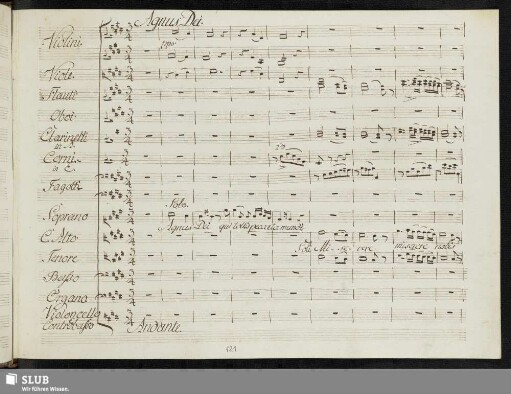 Agnus Dei.
Violini
Viole
Flauti
Oboi
Clarinetti
in A
Corni
in E
Fagotti
Solo
Soprano
Agnus Dei qui tollis peccata mundi
E Alto
Soli Miserere miserere nobis
Tenore
Basso
Organo
Violoncello
Contrabasso
Andante
SLUB
Wir führen Wissen.